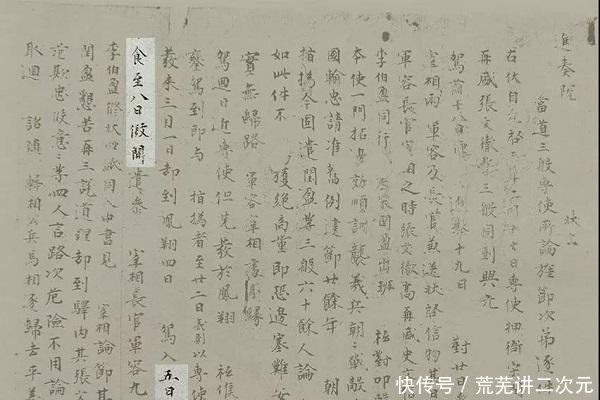 進奏院 狀上
當道三般專使所論旌節次第逐
右伏自光啓三年二月十七日專使衙宋
再盛張文徹等三般同到興元
駕前十八日 十九日 對廿日
宰相兩軍容及長官兼送狀啓信物其
軍容長官宰相之時張文徹高再盛史
李伯盈同行 宋閏盈出班 祗對叩
本使一門拓邊効順訓襲義兵朝朝戰敵
國輸忠請准舊例建節廿餘年 朝
指撝今因遣閏盈等三般六十餘人論
如此件不 獲絕商量即恐邊塞難安
實無歸路 軍容宰相處分緣
駕迴日近專使但先發於鳳翔 祗候
鑾駕到即与 指撝者至廿二日夷則以專使
發來三月一日却到鳳翔四日 駕入五日
食至八日假開遣參 宰相長官軍容九
李伯盈修狀四紙同入中書見 宰相論節其
閏盈懇苦再三說道理却到驛內其張文
范欺忠段意意等四人言路次危險不用論
取迴 詔隨韓相公兵馬相逐歸去平善
快传号/荒芜讲二次元